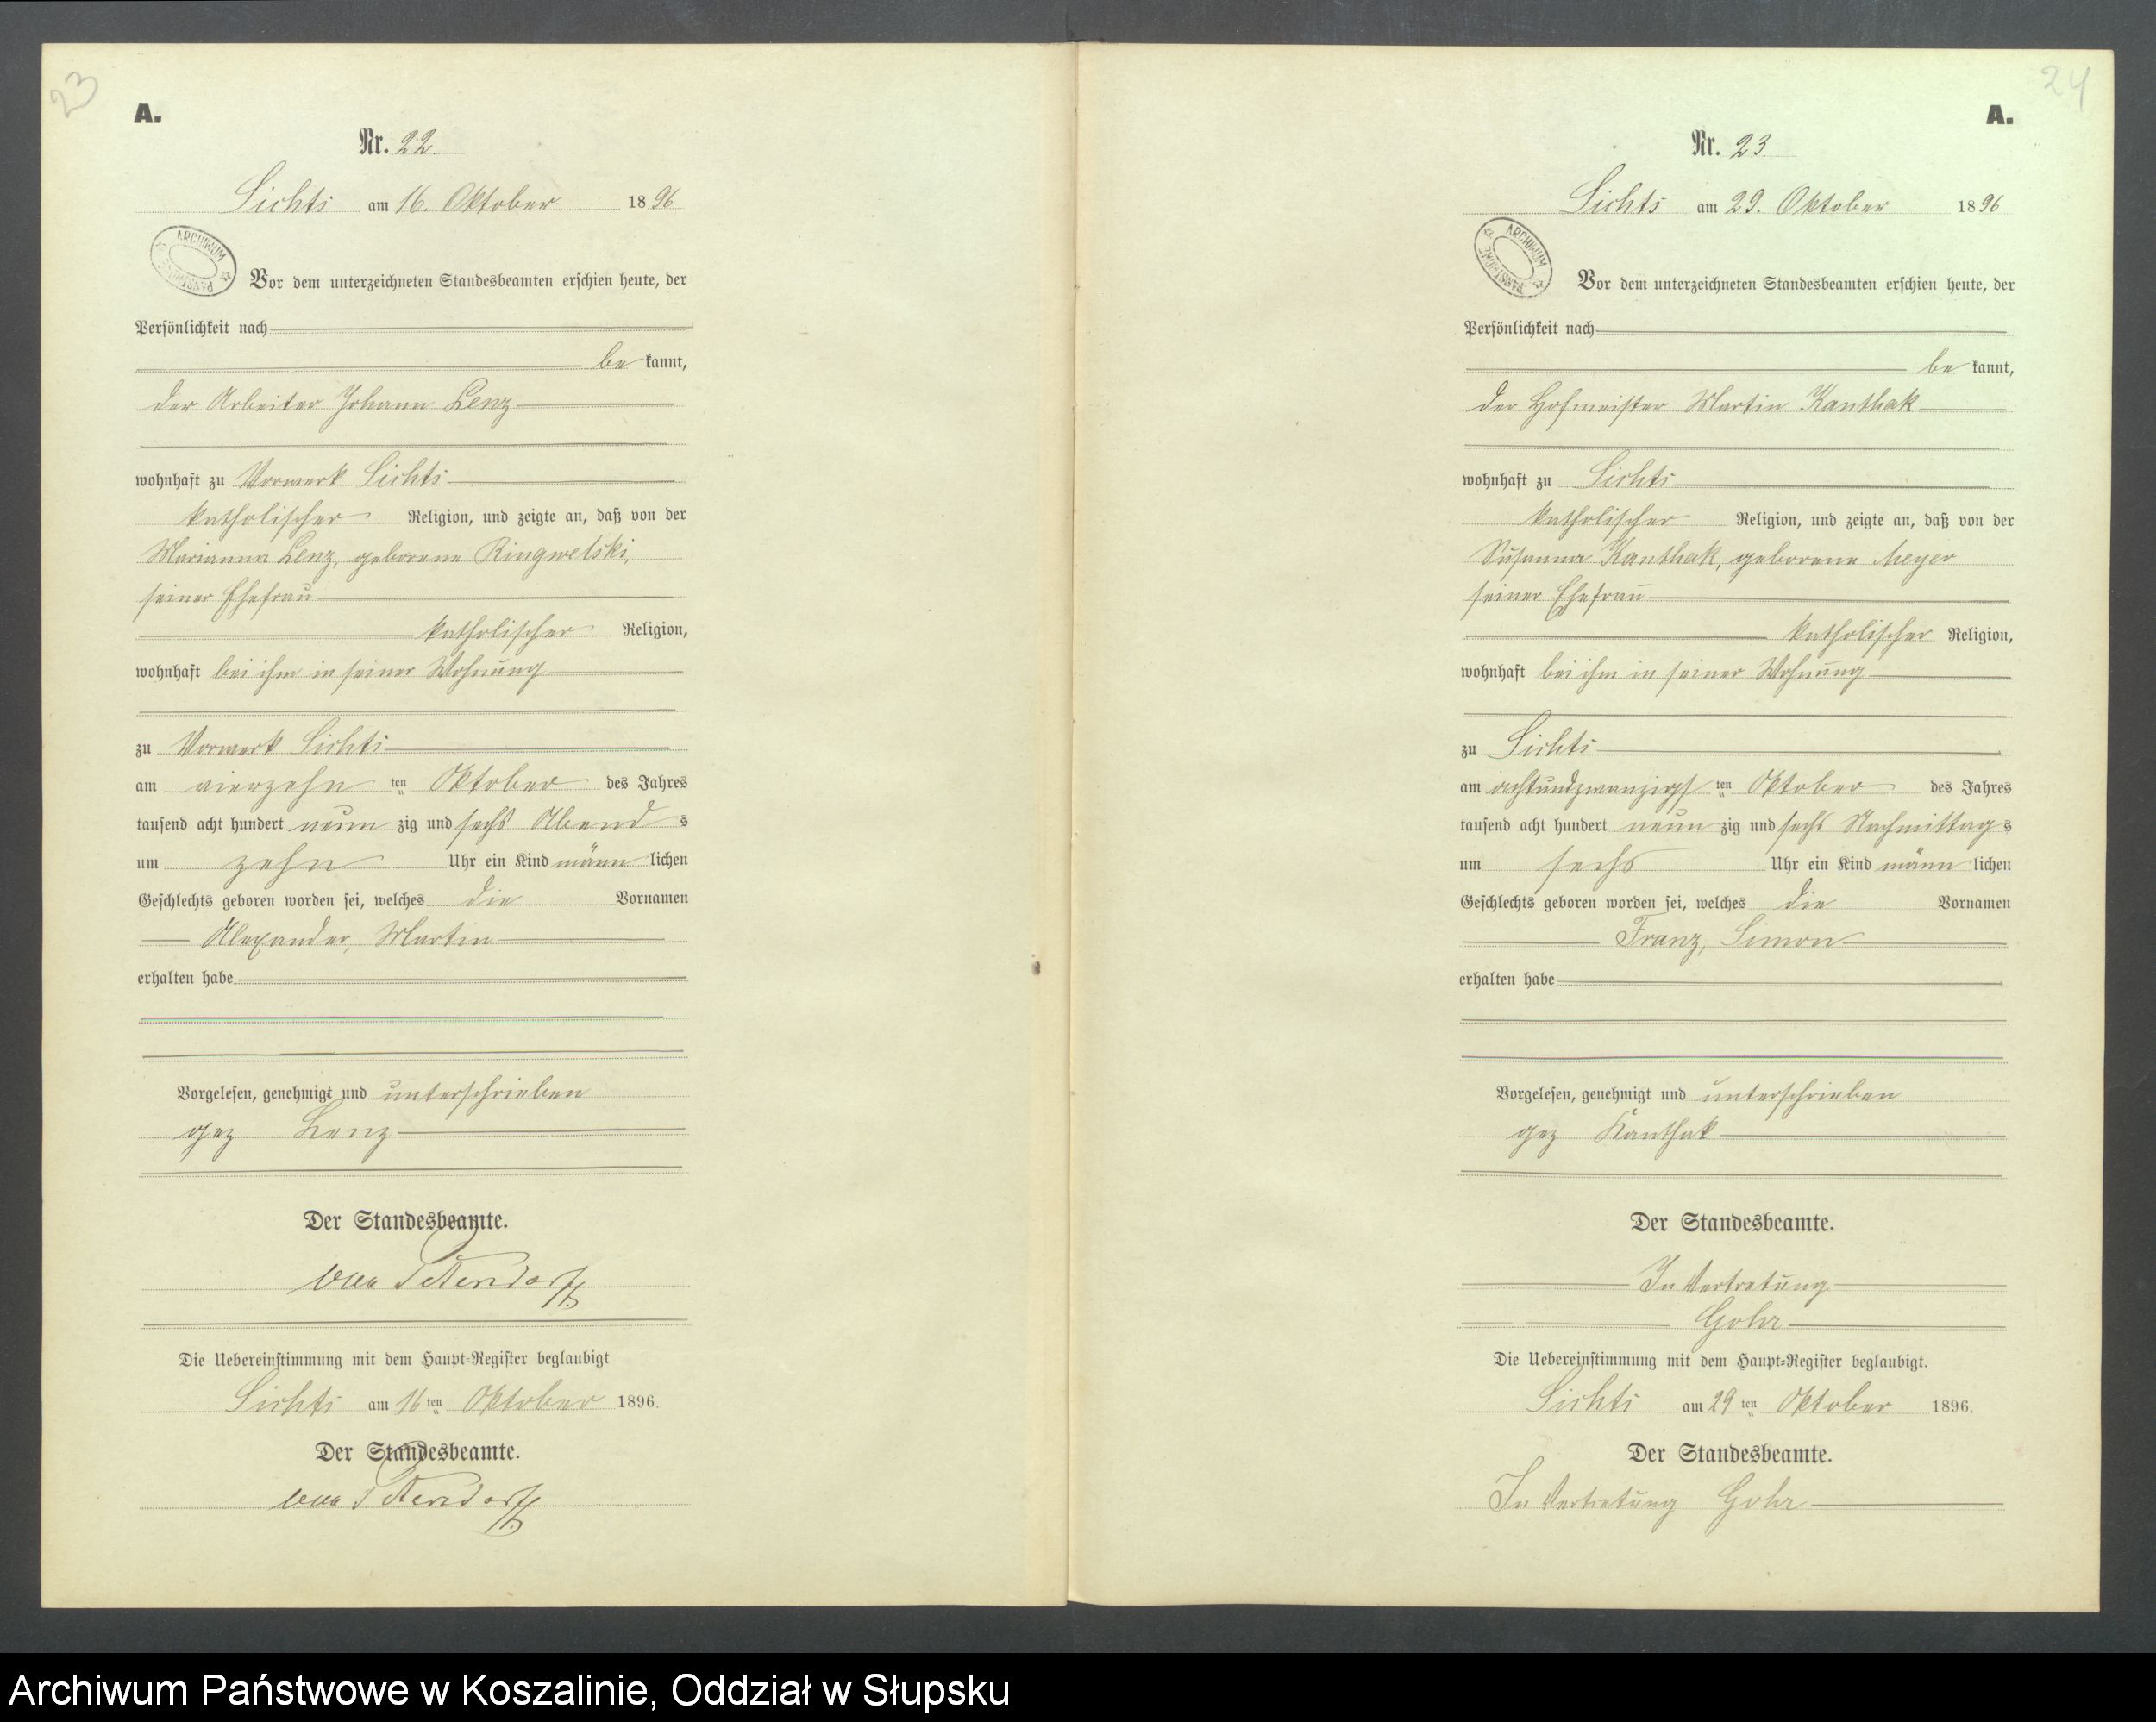 23
A.
Nr. 22.
Lichts am 16. Oktober 1896
ARCHIWUM PAŃSTWOWE
Vor dem unterzeichneten Standesbeamten erschien heute, der
Persönlichkeit nach
be kannt,
der Arbeiter Johann Lenz
wohnhaft zu Vorwerk Lichts
katholischer Religion, und zeigte an, daß von der
Marianna Lenz, geborene Ringwelski,
seiner Ehefrau
katholischer Religion,
wohnhaft bei ihm in seiner Wohnung
zu Vorwerk Lichts
am vierzehn ten Oktober des Jahres
tausend acht hundert neun zig und sechs Abend s
um zehn Uhr ein Kind männ lichen
Geschlechts geboren worden sei, welches die Vornamen
Alexander, Martin
erhalten habe
Vorgelesen, genehmigt und unterschrieben
gez Lenz
Der Standesbeamte.
Die Uebereinstimmung mit dem Haupt-Register beglaubigt
Lichts am 16 ten Oktober 1896.
Der Standesbeamte.
24
A.
Nr. 23.
Lichts am 29. Oktober 1896
ARCHIWUM PAŃSTWOWE
Vor dem unterzeichneten Standesbeamten erschien heute, der
Persönlichkeit nach
be kannt,
der Hofmeister Martin Kanthak
wohnhaft zu Lichts
katholischer Religion, und zeigte an, daß von der
Susanna Kanthak, geborene Meyer
seiner Ehefrau
katholischer Religion,
wohnhaft bei ihm in seiner Wohnung
zu Lichts
am achtundzwanzigst ten Oktober des Jahres
tausend acht hundert neun zig und sechs Nachmittag s
um sechs Uhr ein Kind männ lichen
Geschlechts geboren worden sei, welches die Vornamen
Franz, Simon
erhalten habe
Vorgelesen, genehmigt und unterschrieben
gez Kanthak
Der Standesbeamte.
In Vertretung
Gohr
Die Uebereinstimmung mit dem Haupt-Register beglaubigt.
Lichts am 29 ten Oktober 1896.
Der Standesbeamte.
In Vertretung Gohr
Archiwum Państwowe w Koszalinie, Oddział w Słupsku